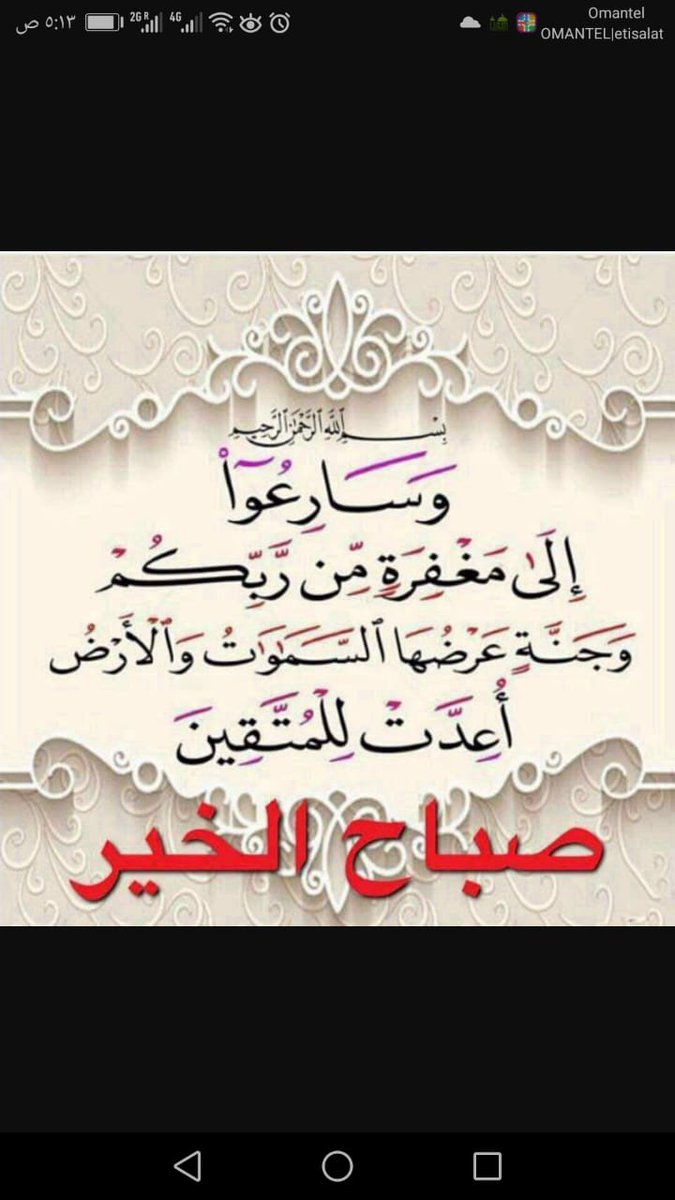 ٥:١٣ ص
2G R 4G
Omantel
OMANTEL|etisalat
بِسْمِ ٱللَّهِ ٱلرَّحْمَٰنِ ٱلرَّحِيمِ
وَسَارِعُوٓا۟
إِلَىٰ مَغْفِرَةٍ مِّن رَّبِّكُمْ
وَجَنَّةٍ عَرْضُهَا ٱلسَّمَٰوَٰتُ وَٱلْأَرْضُ
أُعِدَّتْ لِلْمُتَّقِينَ
صباح الخير